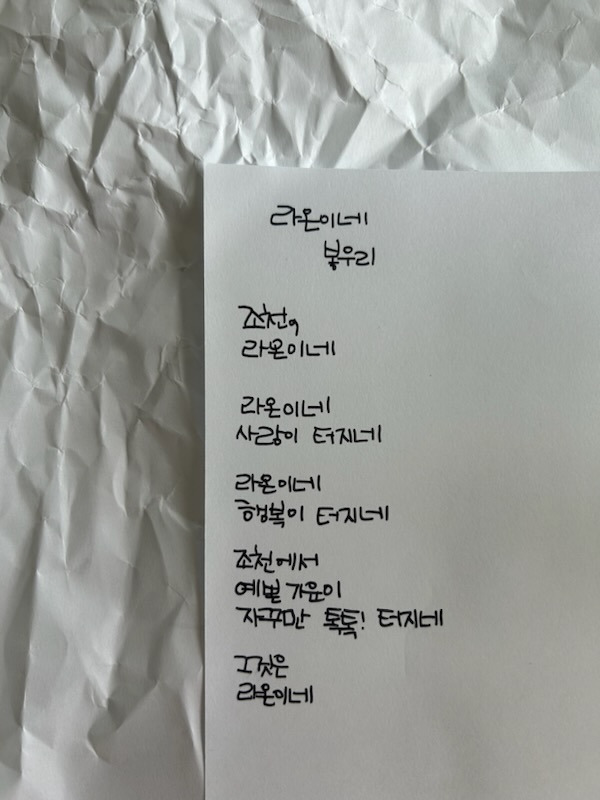 라온이네
봋우리
조천,
라온이네
라온이네
사랑이 터지네
라온이네
행복이 터지네
조천에서
예쁠 가운이
자꾸만 톡톡! 터지네
그것은
라온이네